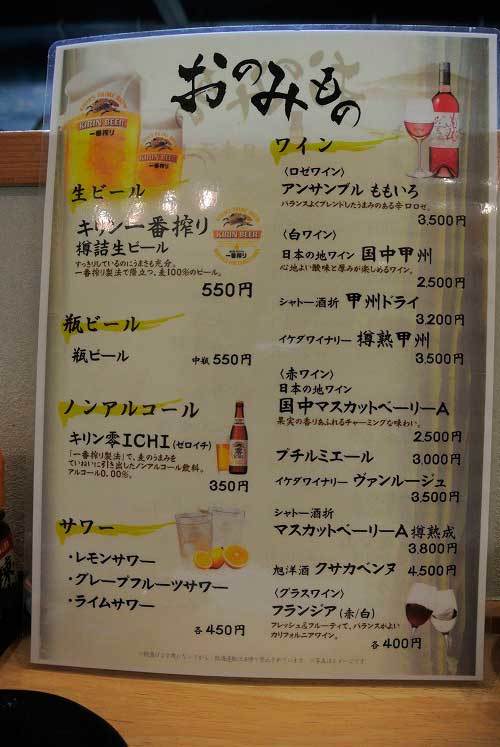 おのみもの
生ビール
キリン一番搾り
樽詰生ビール
すっきりしているのにうまさも充分。
一番搾り製法で際立つ、麦100%のビール。
550円
瓶ビール
瓶ビール 中瓶 550円
ノンアルコール
キリン零ICHI(ゼロイチ)
「一番搾り製法」で、麦のうまみを
ていねいに引き出したノンアルコール飲料。
アルコール0.00%。
350円
サワー
・レモンサワー
・グレープフルーツサワー
・ライムサワー
各 450円
ワイン
〈ロゼワイン〉
アンサンブル ももいろ
バランスよくブレンドしたうまみのある辛口ロゼ。
3,500円
〈白ワイン〉
日本の地ワイン 国中甲州
心地よい酸味と厚みが楽しめるワイン。
2,500円
シャトー酒折 甲州ドライ
3,200円
イケダワイナリー 樽熟甲州
3,500円
〈赤ワイン〉
日本の地ワイン
国中マスカットベーリーA
果実の香りあふれるチャーミングな味わい。
2,500円
プチルミエール 3,000円
イケダワイナリー ヴァンルージュ
3,500円
シャトー酒折
マスカットベーリーA 樽熟成
3,800円
旭洋酒 クサカベンヌ 4,500円
〈グラスワイン〉
フランジア(赤/白)
フレッシュ&フルーティで、バランスがよい
カリフォルニアワイン。
各 400円
KIRIN BEER
一番搾り
KIRIN BEER
KIRIN BEER
一番搾り